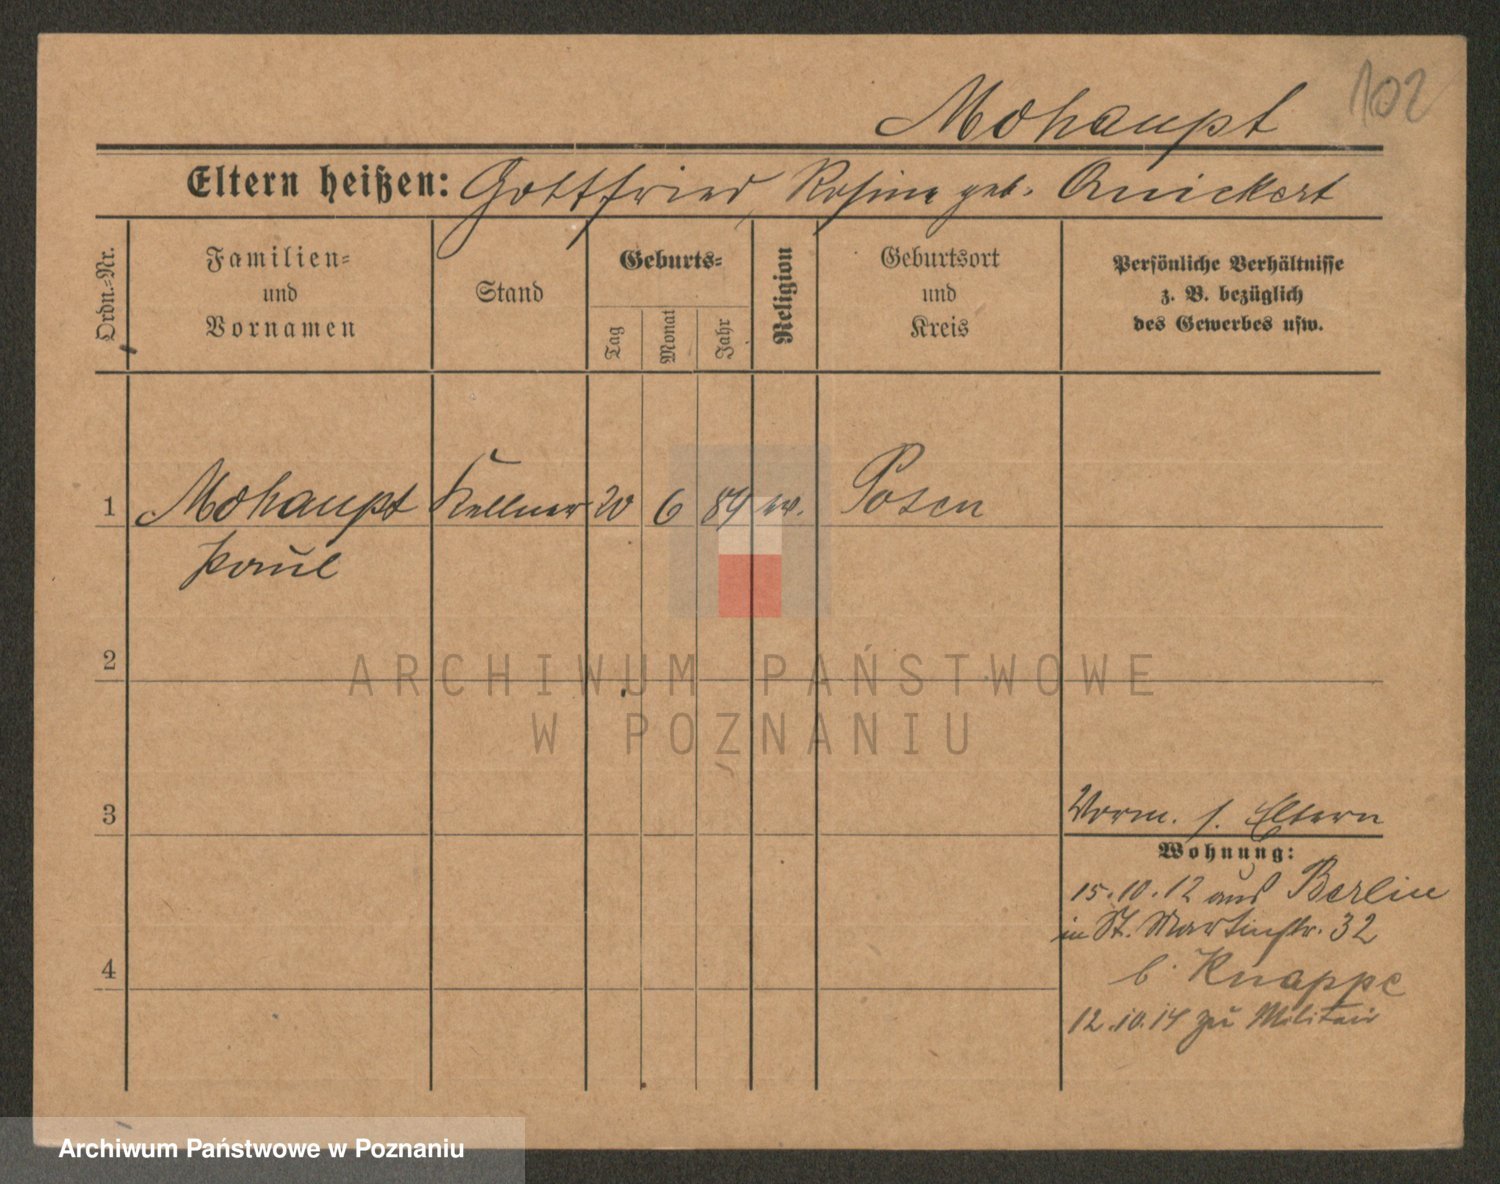 102
Mohaupt
Eltern heißen: Gottfried, Rosine geb. Quickert
Ordn.-Nr.
Familien-
und
Vornamen
Stand
Geburts-
Tag
Monat
Jahr
Religion
Geburtsort
und
Kreis
Persönliche Verhältnisse
z. B. bezüglich
des Gewerbes usw.
1 Mohaupt Kellner 20 6 89 ev. Posen
Paul
2
ARCHIWUM PAŃSTWOWE
W POZNANIU
3
Vorm. s. Eltern
Wohnung:
15.10.12 aus Berlin
in St. Martinstr. 32
4
b. Knappe
12.10.14 zu Militair
Archiwum Państwowe w Poznaniu